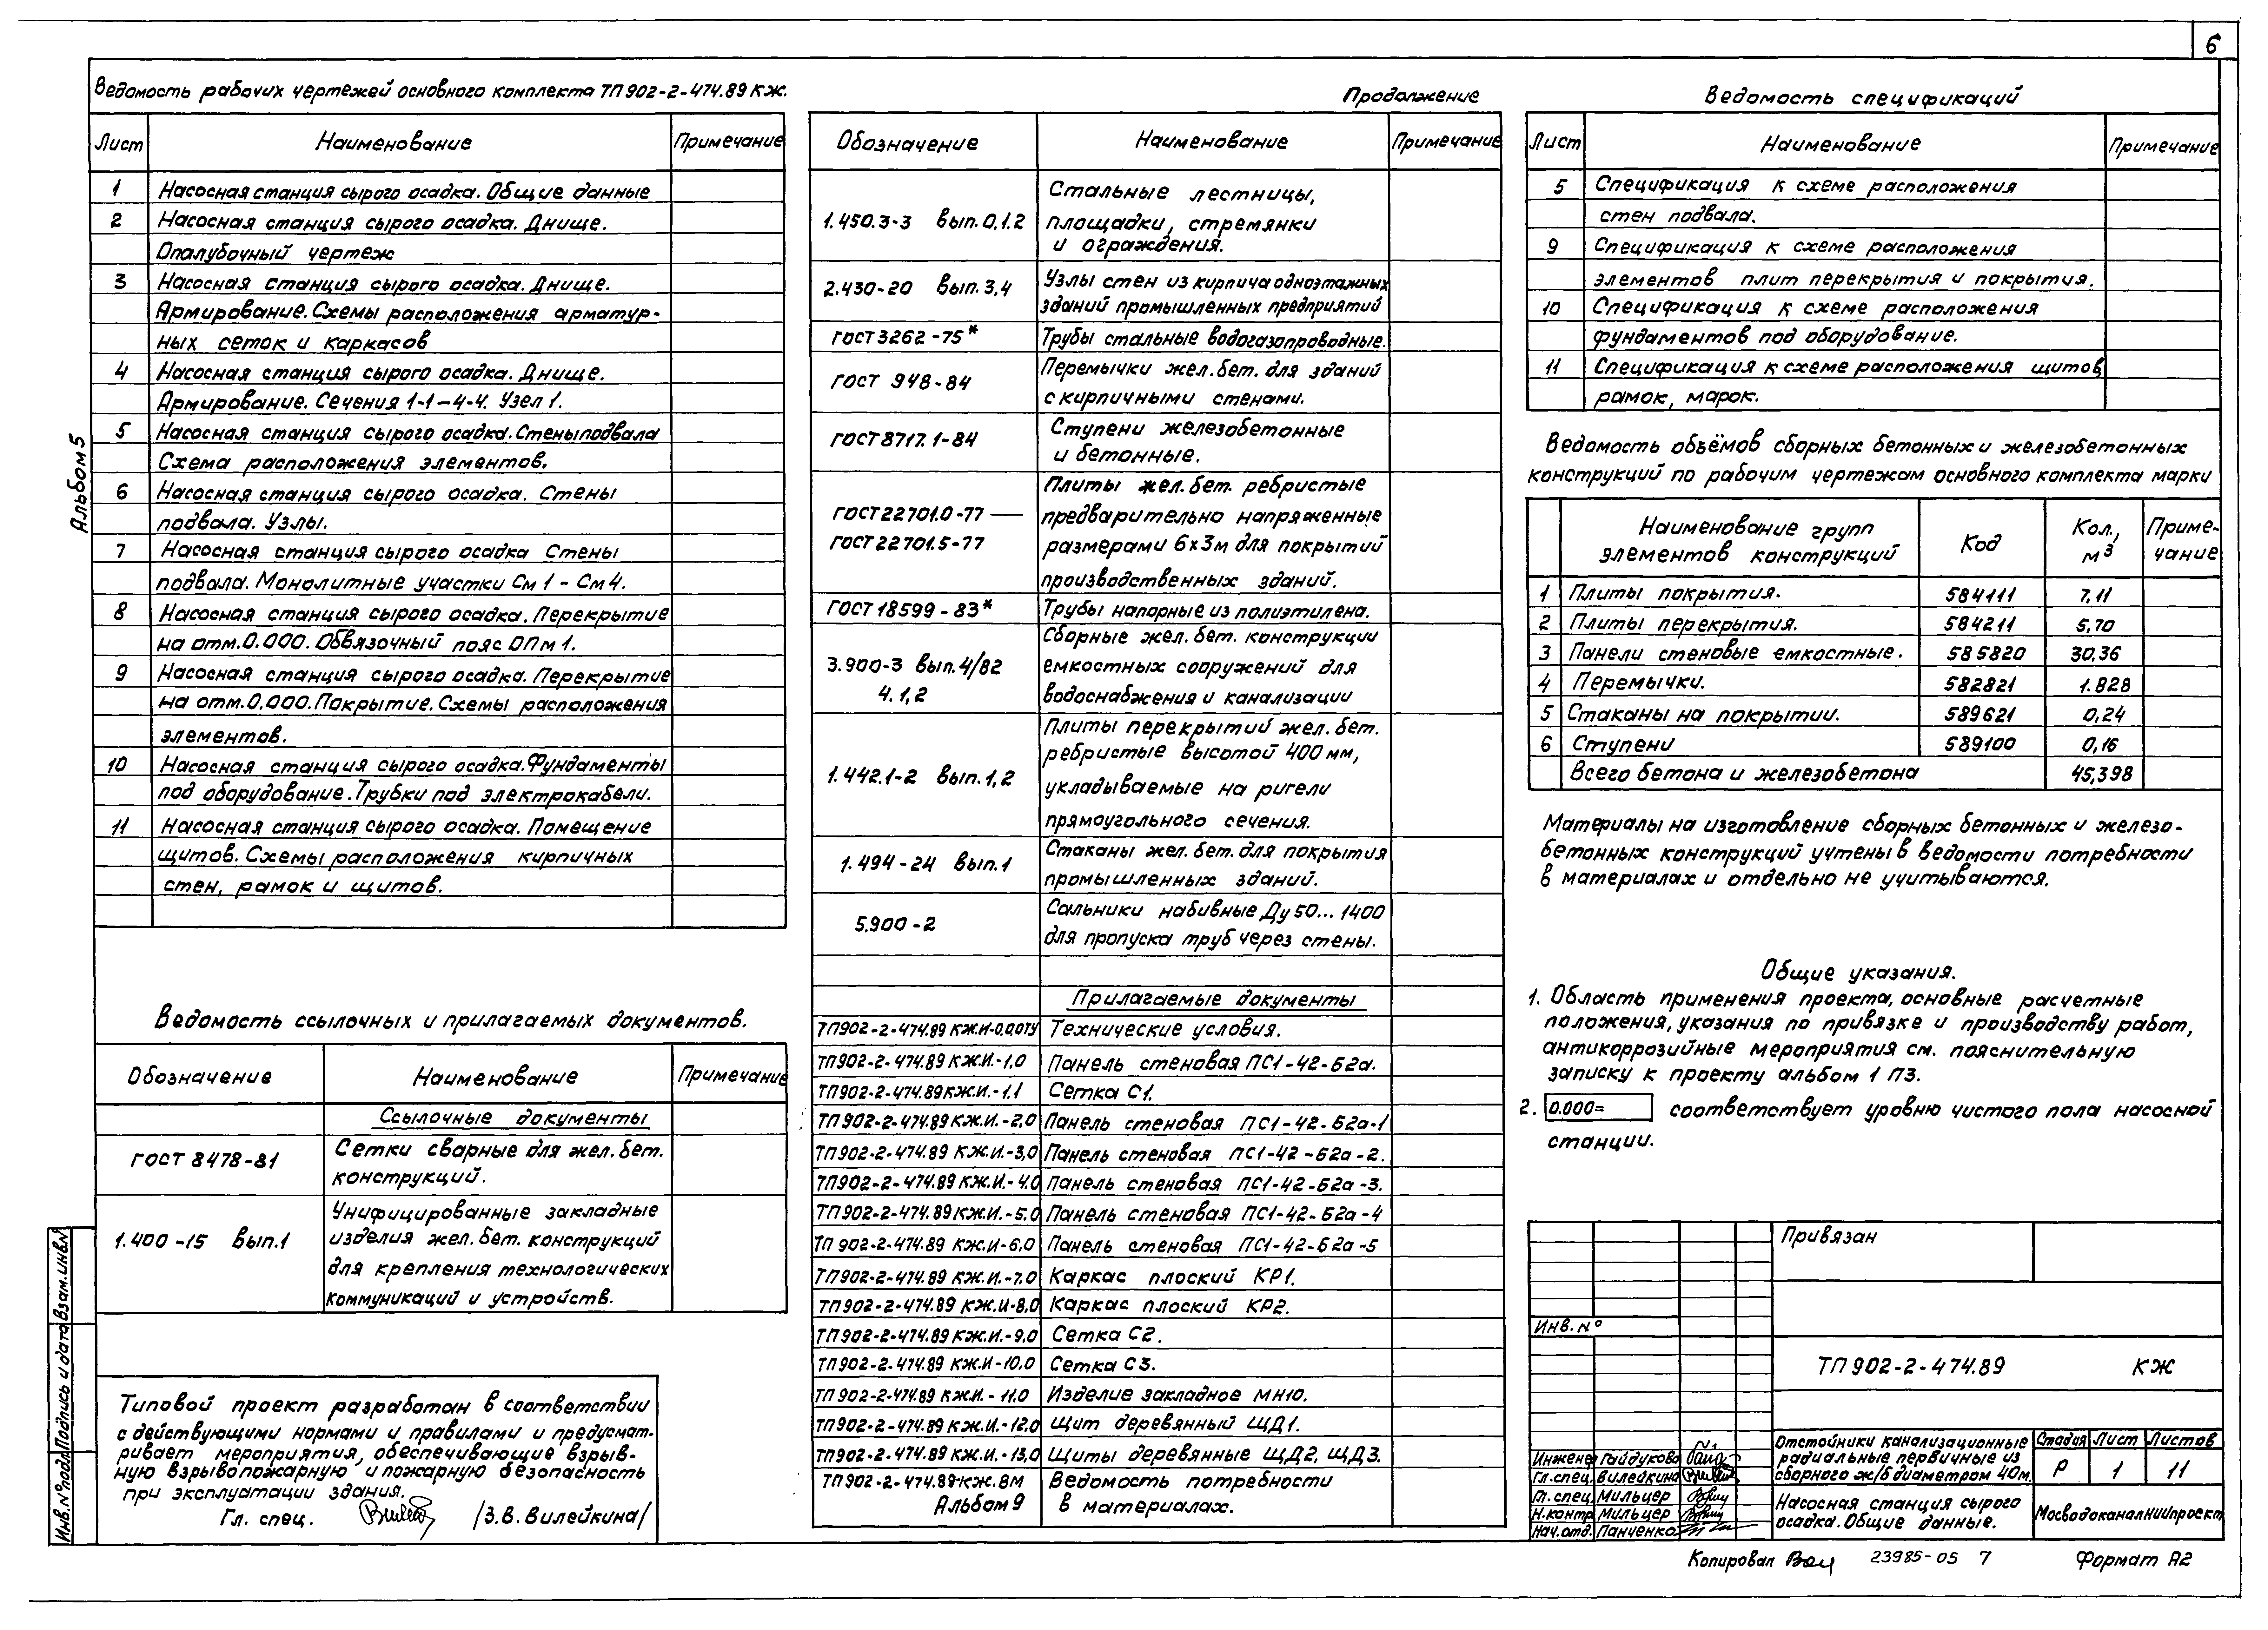 6
Альбом 5
Ведомость рабочих чертежей основного комплекта ТП 902-2-474.89 КЖ.
Лист Наименование Примечание
1 Насосная станция сырого осадка. Общие данные
2 Насосная станция сырого осадка. Днище.
Опалубочный чертеж
3 Насосная станция сырого осадка. Днище.
Армирование. Схемы расположения арматур-
ных сеток и каркасов
4 Насосная станция сырого осадка. Днище.
Армирование. Сечения 1-1 – 4-4. Узел 1.
5 Насосная станция сырого осадка. Стены подвала
Схема расположения элементов.
6 Насосная станция сырого осадка. Стены
подвала. Узлы.
7 Насосная станция сырого осадка Стены
подвала. Монолитные участки См 1 - См 4.
8 Насосная станция сырого осадка. Перекрытие
на отм. 0.000. Обвязочный пояс ОПм 1.
9 Насосная станция сырого осадка. Перекрытие
на отм. 0.000. Покрытие. Схемы расположения
элементов.
10 Насосная станция сырого осадка. Фундаменты
под оборудование. Трубки под электрокабели.
11 Насосная станция сырого осадка. Помещение
щитов. Схемы расположения кирпичных
стен, рамок и щитов.
Ведомость ссылочных и прилагаемых документов.
Обозначение Наименование Примечание
Ссылочные документы
ГОСТ 8478-81 Сетки сварные для жел. бет.
конструкций.
1.400-15 вып.1 Унифицированные закладные
изделия жел. бет. конструкций
для крепления технологических
коммуникаций и устройств.
Типовой проект разработан в соответствии
с действующими нормами и правилами и предусмат-
ривает мероприятия, обеспечивающие взрыв-
ную взрывопожарную и пожарную безопасность
при эксплуатации здания.
Гл. спец. /З.В. Вилейкина/
Инв. № подл. Подпись и дата Взам. инв. №
Продолжение
Обозначение Наименование Примечание
1.450.3-3 вып. 0,1.2 Стальные лестницы,
площадки, стремянки
и ограждения.
2.430-20 вып. 3,4 Узлы стен из кирпича одноэтажных
зданий промышленных предприятий
ГОСТ 3262-75* Трубы стальные водогазопроводные.
ГОСТ 948-84 Перемычки жел. бет. для зданий
с кирпичными стенами.
ГОСТ 8717.1-84 Ступени железобетонные
и бетонные.
ГОСТ 22701.0-77 — ГОСТ 22701.5-77 Плиты жел. бет. ребристые
предварительно напряженные
размерами 6х3м для покрытий
производственных зданий.
ГОСТ 18599-83* Трубы напорные из полиэтилена.
3.900-3 вып. 4/82 4.1,2 Сборные жел. бет. конструкции
емкостных сооружений для
водоснабжения и канализации
1.442.1-2 вып. 1,2 Плиты перекрытий жел. бет.
ребристые высотой 400 мм,
укладываемые на ригели
прямоугольного сечения.
1.494-24 вып. 1 Стаканы жел. бет. для покрытия
промышленных зданий.
5.900-2 Сальники набивные Ду 50... 1400
для пропуска труб через стены.
Прилагаемые документы
ТП902-2-474.89 КЖ.И-0.00ТУ Технические условия.
ТП902-2-474.89 КЖ.И.-1.0 Панель стеновая ПС1-42-Б2а.
ТП902-2-474.89 КЖ.И.-1.1 Сетка С1.
ТП902-2-474.89 КЖ.И.-2.0 Панель стеновая ПС1-42-Б2а-1
ТП902-2-474.89 КЖ.И.-3,0 Панель стеновая ПС1-42-Б2а-2.
ТП902-2-474.89 КЖ.И.-4.0 Панель стеновая ПС1-42-Б2а-3.
ТП902-2-474.89 КЖ.И.-5.0 Панель стеновая ПС1-42-Б2а-4
ТП 902-2-474.89 КЖ.И-6,0 Панель стеновая ПС1-42-Б2а-5
ТП902-2-474.89 КЖ.И.-7.0 Каркас плоский КР1.
ТП902-2-474.89 КЖ.И-8,0 Каркас плоский КР2.
ТП902-2-474.89 КЖ.И.-9,0 Сетка С2.
ТП902-2-474.89 КЖ.И-10,0 Сетка С3.
ТП 902-2-474.89 КЖ.И.-11.0 Изделие закладное МН10.
ТП902-2-474.89 КЖ.И.-12,0 Щит деревянный ЩД1.
ТП902-2-474.89 КЖ.И.-13,0 Щиты деревянные ЩД2, ЩД3.
ТП902-2-474.89 КЖ.ВМ Альбом 9 Ведомость потребности
в материалах.
Ведомость спецификаций
Лист Наименование Примечание
5 Спецификация к схеме расположения
стен подвала.
9 Спецификация к схеме расположения
элементов плит перекрытия и покрытия.
10 Спецификация к схеме расположения
фундаментов под оборудование.
11 Спецификация к схеме расположения щитов,
рамок, марок.
Ведомость объёмов сборных бетонных и железобетонных
конструкций по рабочим чертежам основного комплекта марки
Наименование групп элементов конструкций Код Кол., м³ Приме-чание
1 Плиты покрытия. 584111 7,11
2 Плиты перекрытия. 584211 5,70
3 Панели стеновые емкостные. 585820 30,36
4 Перемычки. 582821 1.828
5 Стаканы на покрытии. 589621 0,24
6 Ступени 589100 0,16
Всего бетона и железобетона 45,398
Материалы на изготовление сборных бетонных и железо-
бетонных конструкций учтены в ведомости потребности
в материалах и отдельно не учитываются.
Общие указания.
1. Область применения проекта, основные расчетные
положения, указания по привязке и производству работ,
антикоррозийные мероприятия см. пояснительную
записку к проекту альбом 1 ПЗ.
2. 0.000= соответствует уровню чистого пола насосной
станции.
Привязан
Инв. №
ТП 902-2-474.89 КЖ
Инженер Гайдукова
Гл. спец. Вилейкина
Гл. спец. Мильцер
Н. контр Мильцер
Нач. отд. Панченко
Отстойники канализационные
радиальные первичные из
сборного ж/б диаметром 40м.
Стадия Лист Листов
Р 1 11
Насосная станция сырого
осадка. Общие данные.
Мосводоканалниипроект
Копировал 23985-05 7 Формат А2